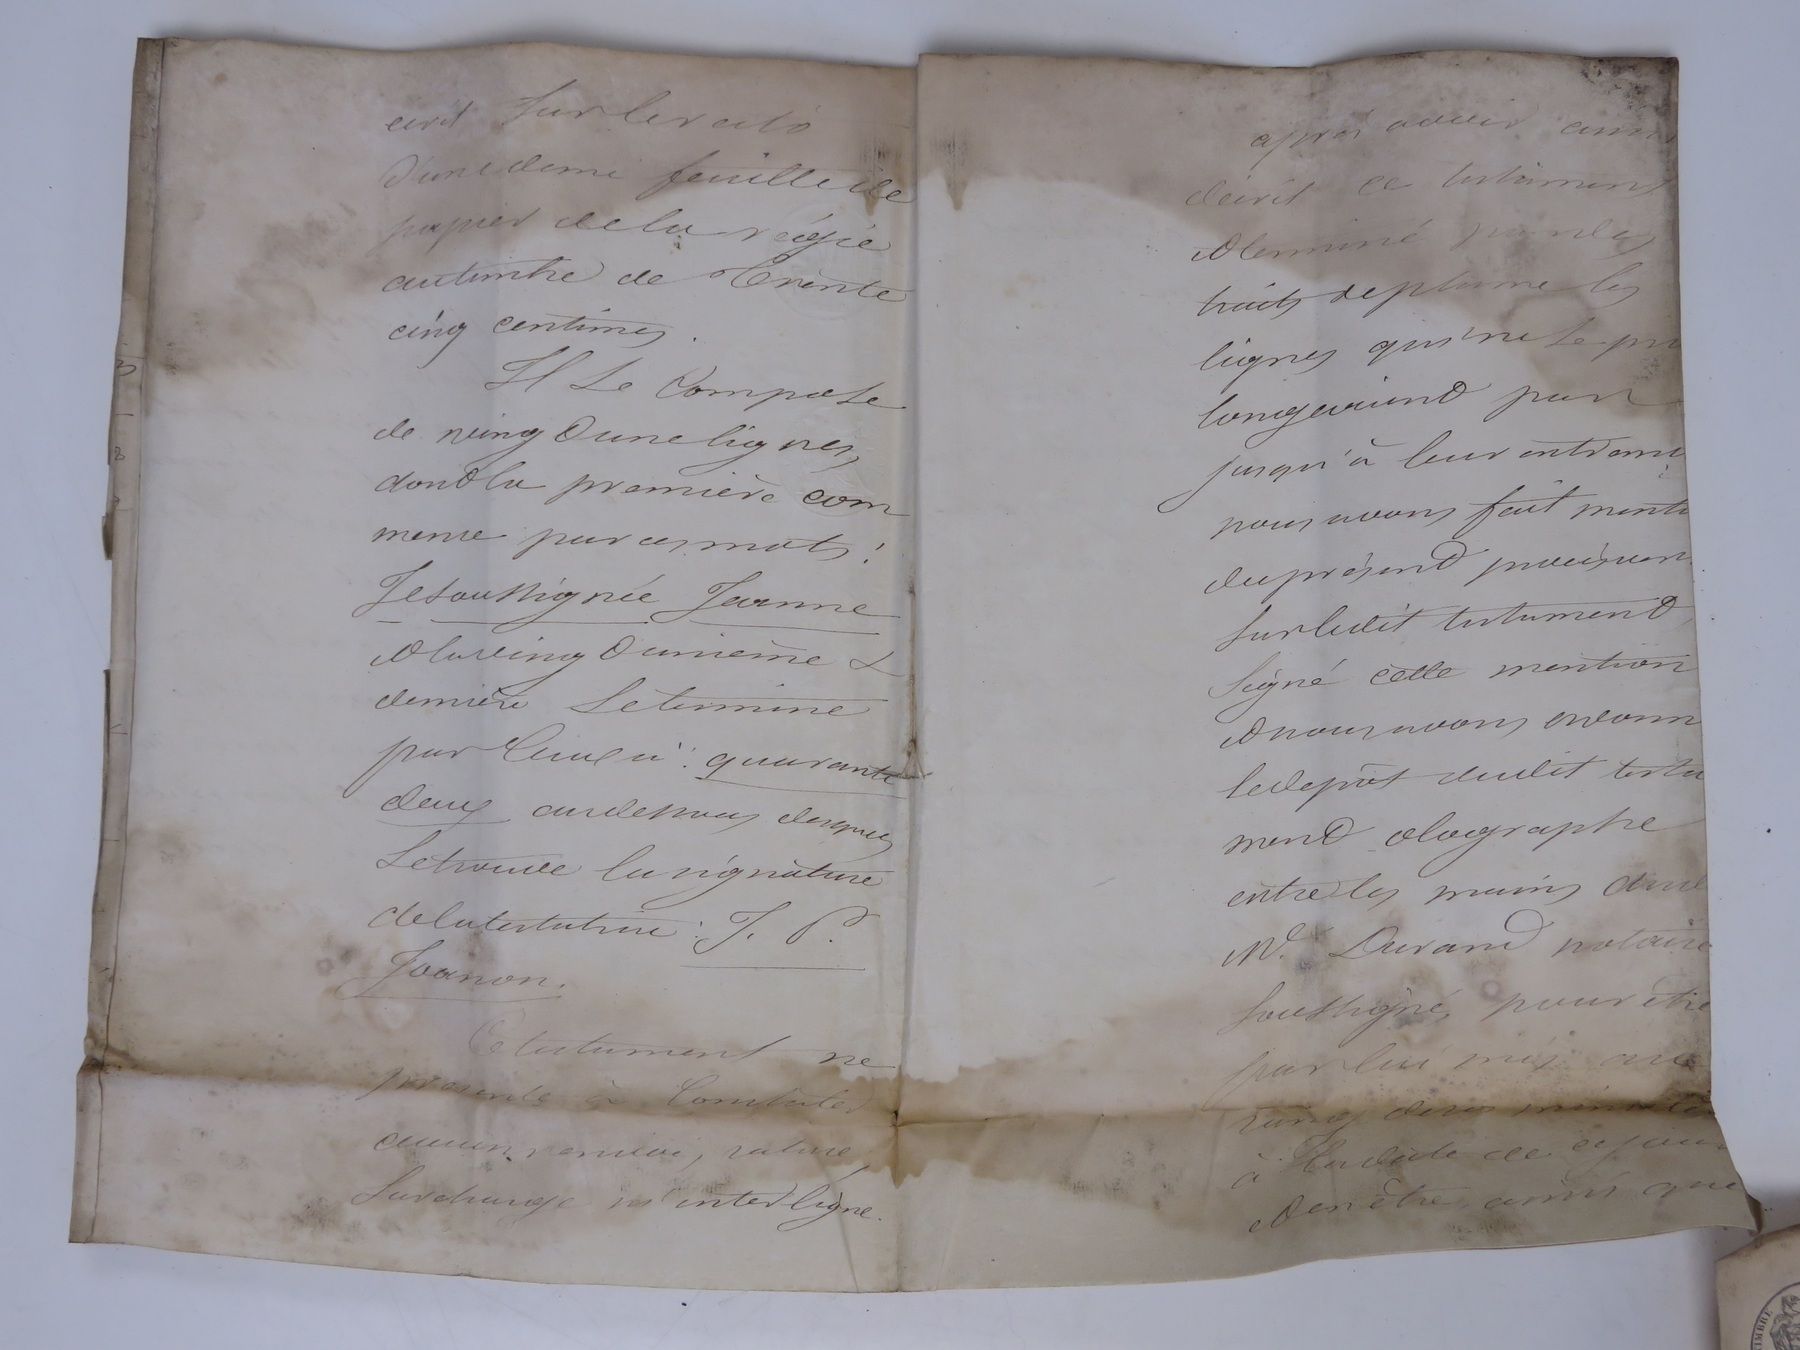 écrit sur le recto
d'une demi feuille de
papier de la régie
au timbre de trente
cinq centimes.
Il se compose
de vingt une lignes,
dont la première com
mence par ces mots:
Je soussignée Jeanne
et la vingt unième &
dernière se termine
par ceux ci: quarante
deux au dessous desquels
se trouve la signature
de la testatrice: J. P.
Joanon.
Ce testament ne
présente à constater
aucun renvoi, rature
surcharge ni interligne.
après avoir ainsi
décrit ce testament
et terminé par des
traits de plume les
lignes qui ne se pro
longeaient pas
jusqu'à leur extrémi
nous avons fait menti
du présent procès ver
sur ledit testament,
signé cette mention
et nous avons ordonn
le dépôt dudit testa
ment olographe
entre les mains dud
Me. Durand notaire
soussigné, pour être
par lui mis au
rang de ses minutes
à la date de ce jour
et en être, ainsi que
TIMBRE